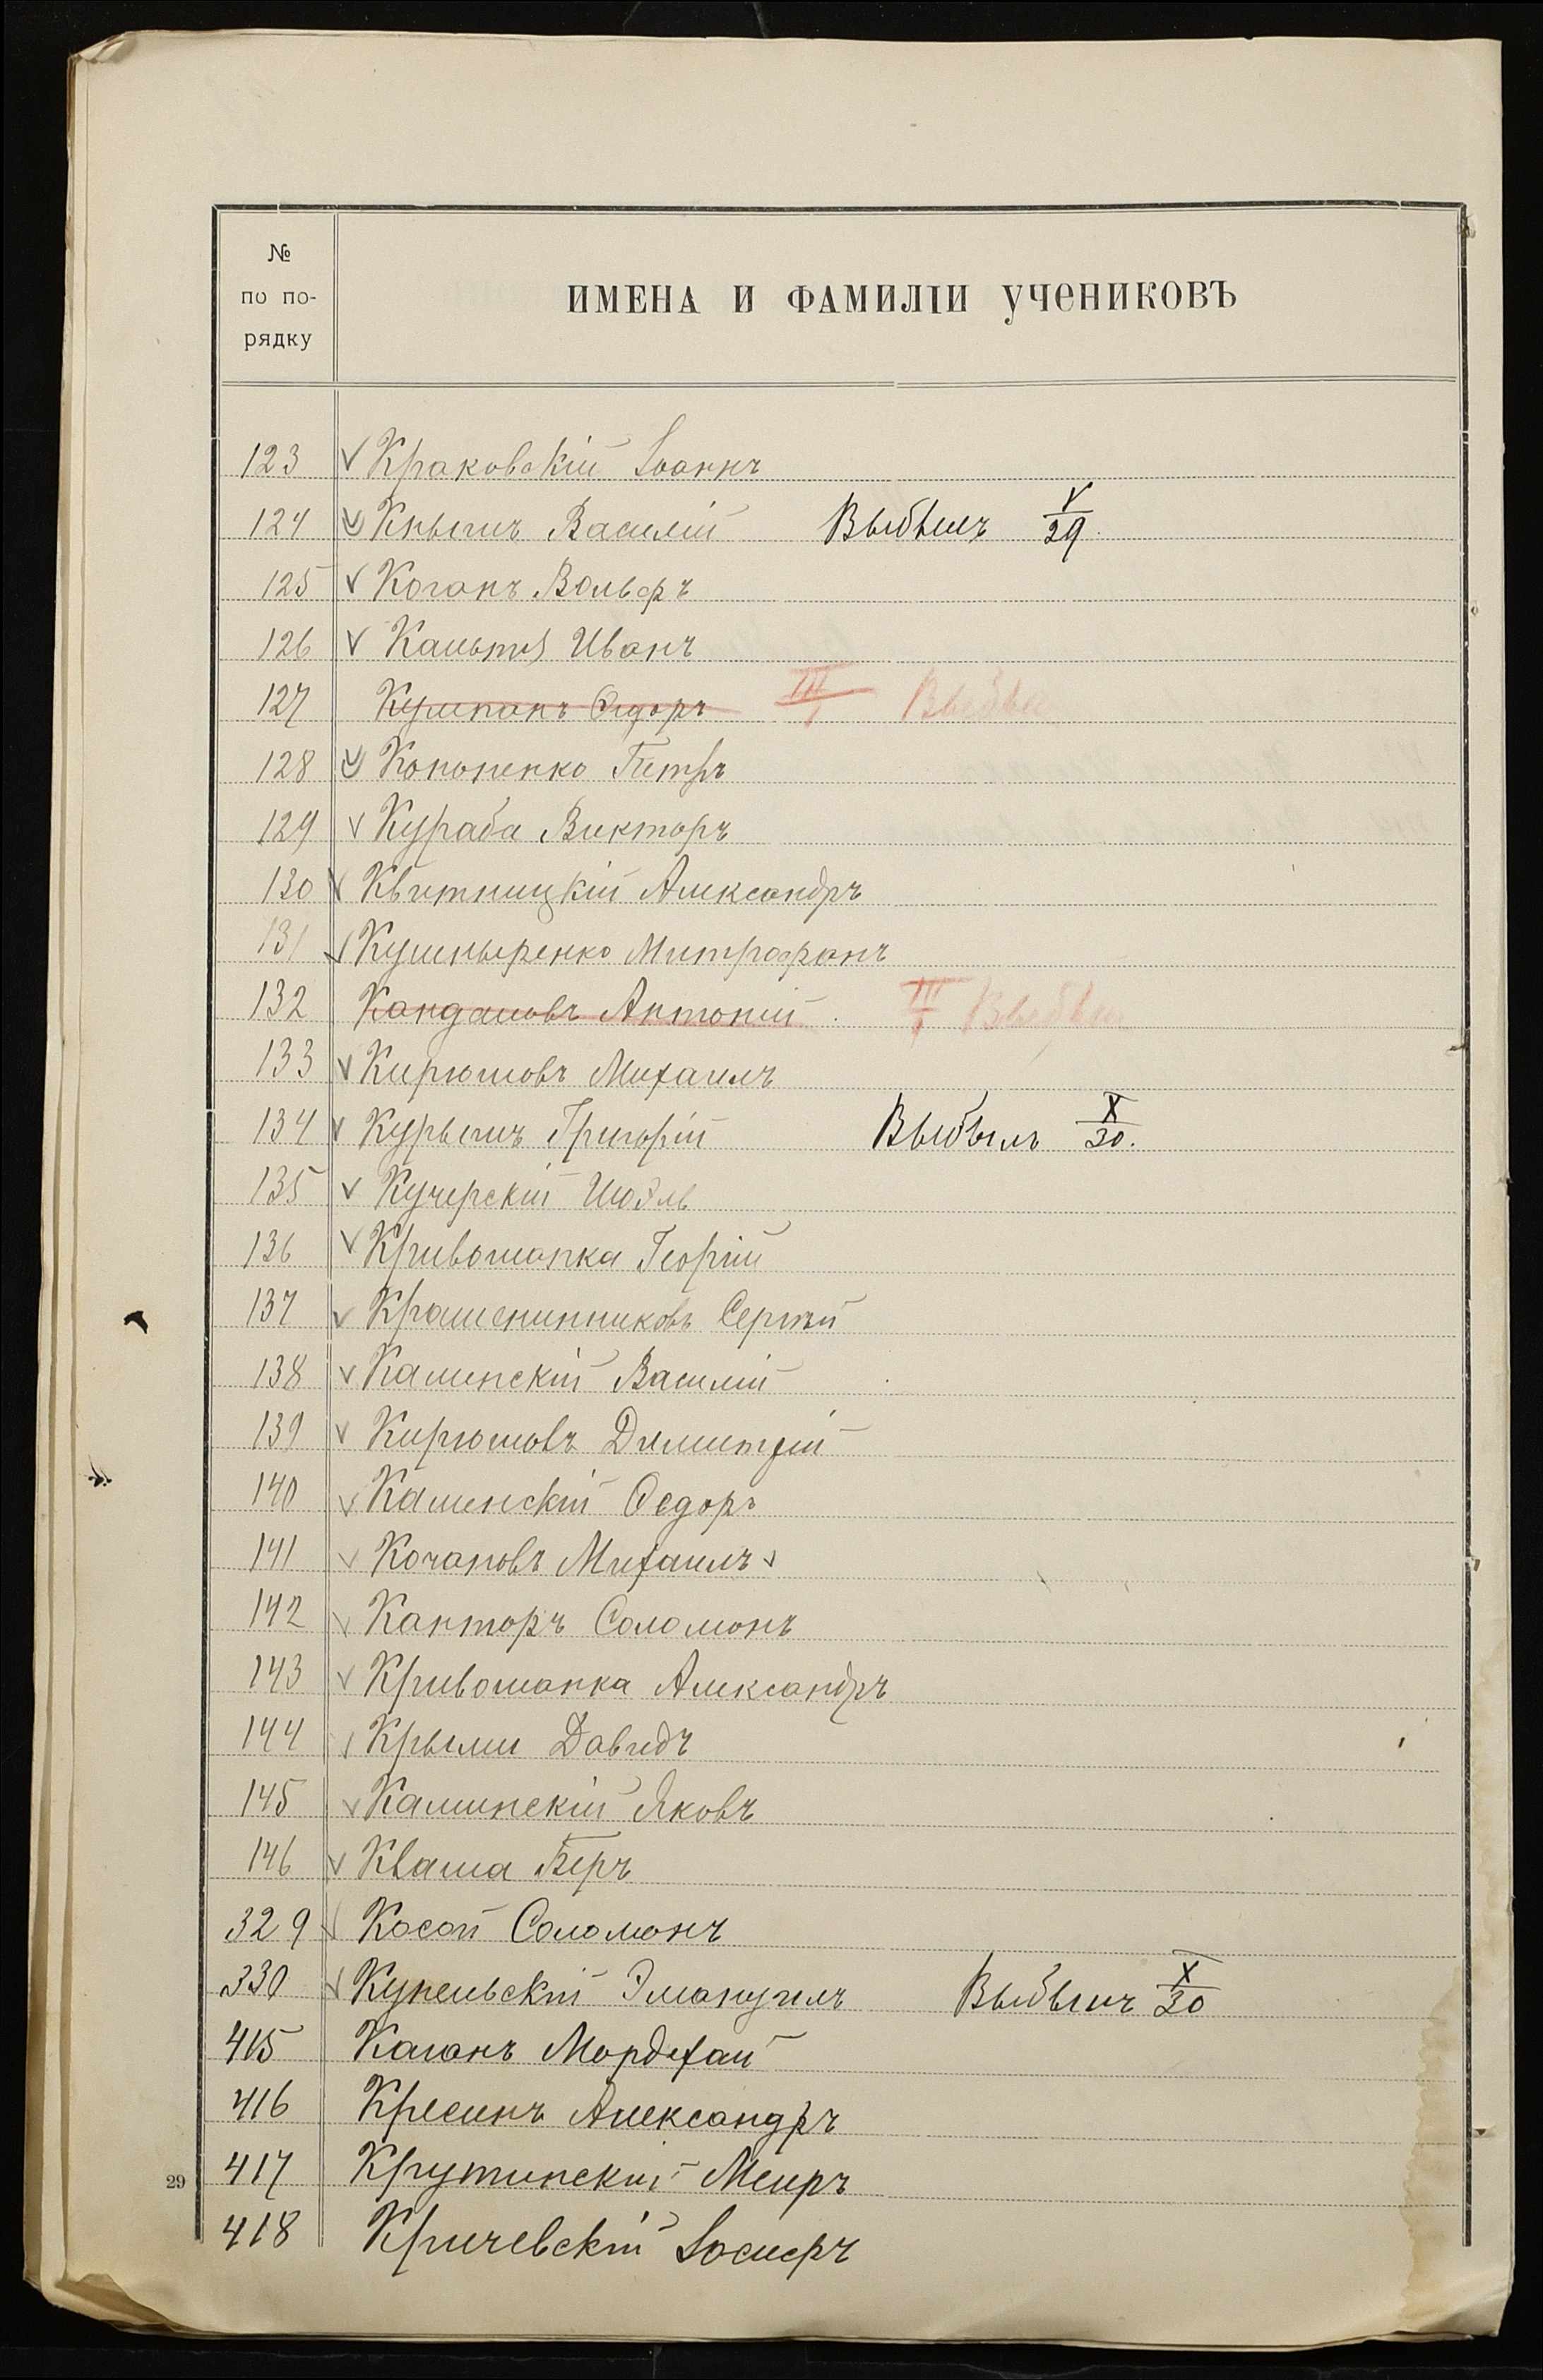 №
по по-
рядку
ИМЕНА И ФАМИЛІИ УЧЕНИКОВЪ
123 Краковскій Іоаннъ
124 Кнышъ Василій Выбылъ V/29.
125 Коганъ Вольфъ
126 Иванъ
127 Ѳедоръ III Выбылъ
128 Кононенко Петръ
129 Кураба Викторъ
130 Квитницкій Александръ
131 Кушныренко Митрофанъ
132 Кандаловъ Антоній III Выбылъ
133 Кирюшовъ Михаилъ
134 Курышъ Григорій Выбылъ X/30.
135 Кучерскій Июэль
136 Кривошапка Георгій
137 Крашенинниковъ Сергѣй
138 Калинскій Василій
139 Кирюшовъ Димитрій
140 Калинскій Ѳедоръ
141 Кочановъ Михаилъ
142 Канторъ Соломонъ
143 Кривошапка Александръ
144 Крыми Давидъ
145 Калинскій Яковъ
146 Кваша Беръ
329 Косой Соломонъ
330 Эмануилъ Выбылъ X/30
415 Каганъ Мордехай
416 Кресинъ Александръ
29
417 Крутинскій Меиръ
418 Кричевскій Іосифъ